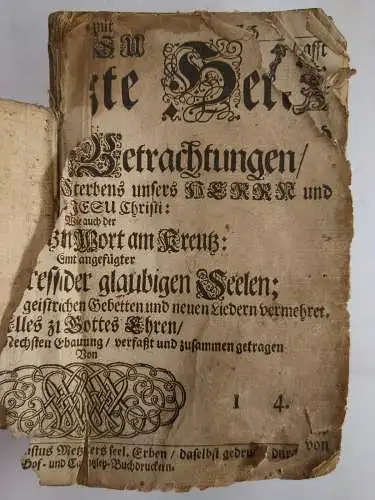 mit
afft
zte Hertz
Betrachtungen/
Sterbens unsers HERRN und
JESU Christi:
Wie auch der
Wort am Kreutz:
Samt angefügter
der glaubigen Seelen;
geistrichen Gebetten und neuen Liedern vermehret.
Alles zu Gottes Ehren/
Nechsten Erbauung/ verfaßt und zusammen getragen
Von
1 4.
Metzlers seel. Erben/ daselbst gedruckt durch von
Hof- und Cantzley-Buchdruckern.